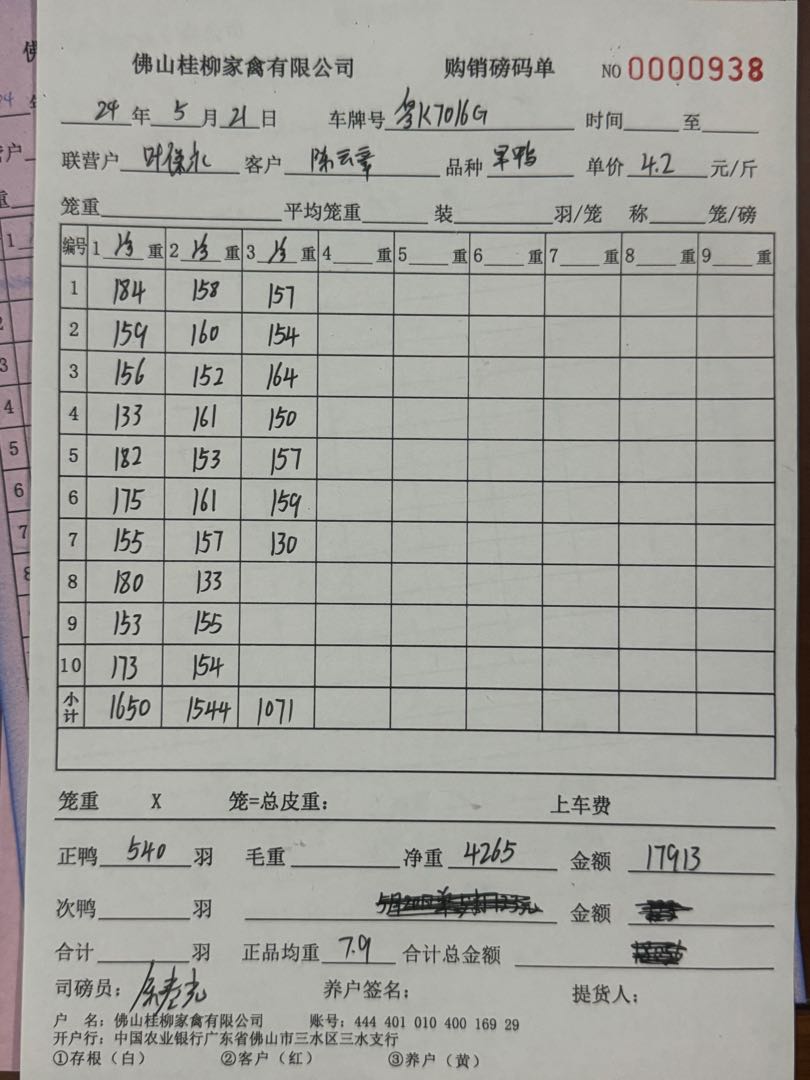 佛山桂柳家禽有限公司 购销磅码单 NO 0000938
24年5月21日 车牌号 粤K7016G 时间 至
联营户 客户 陈云章 品种 单价 4.2 元/斤
笼重 平均笼重 装 羽/笼 称 笼/磅
编号 1 重 2 重 3 重 4 重 5 重 6 重 7 重 8 重 9 重
1 184 158 157
2 159 160 154
3 156 152 164
4 133 161 150
5 182 153 157
6 175 161 159
7 155 157 130
8 180 133
9 153 155
10 173 154
小计 1650 1544 1071
笼重 X 笼=总皮重: 上车费
正鸭 540 羽 毛重 净重 4265 金额 17913
次鸭 羽 金额
合计 羽 正品均重 7.9 合计总金额
司磅员: 养户签名: 提货人:
户 名: 佛山桂柳家禽有限公司 账号: 444 401 010 400 169 29
开户行: 中国农业银行广东省佛山市三水区三水支行
①存根(白) ②客户(红) ③养户(黄)